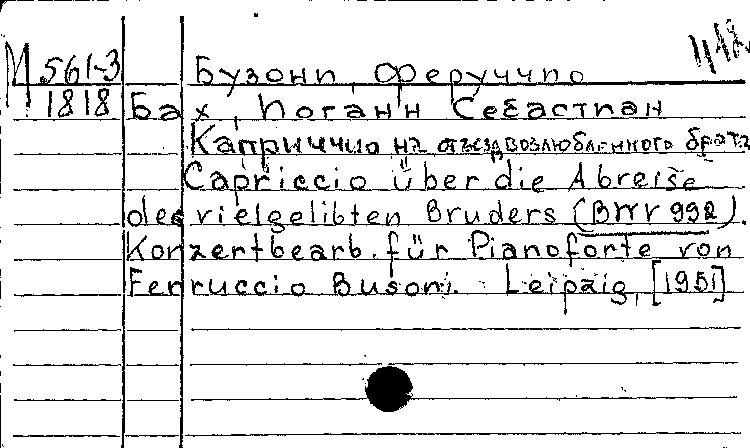 М 561-3 Бузони, Ферруччио
1818 Бах, Иоганн Себастиан
Каприччио на отъезд возлюбленного брата
Capriccio über die Abreise
des vielgelibten Bruders (BWV 992).
Konzertbearb. für Pianoforte von
Ferruccio Busoni. Leipzig, [1951]